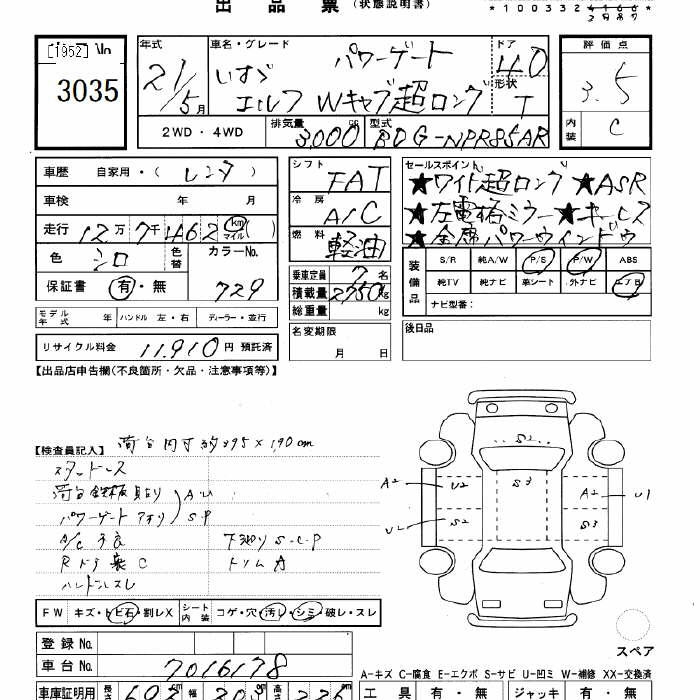 出品票（状態説明書）
*100332
[1952] No
3035
年式 車名・グレード パワーゲート ドア 評価点
21/5月 いすゞ エルフ Wキャブ超ロング 4D 形状 T 3.5
内装 C
2WD・4WD 排気量 3,000 cc 型式 BDG-NPR85AR
車歴 自家用・（レンタ）
車検 年 月
走行 12万7千462 km マイル
色 シロ 色替 カラーNo. 729
保証書 有・無
モデル年式 年 ハンドル 左・右 ディーラー・並行
リサイクル料金 11,910 円 預託済
シフト FAT
冷房 A/C
燃料 軽油
乗車定員 7 名
積載量 2750 kg
総重量 kg
名変期限 月 日
セールスポイント
★ワイド超ロング ★ASR
★左電格ミラー★キーレス
★全席パワーウインドウ
装備品 S/R 純A/W P/S P/W ABS
純TV 純ナビ 革シート 外ナビ エアB
ナビ型番：
後日品
【出品店申告欄（不良箇所・欠品・注意事項等）】
【検査員記入】 荷台内寸 190cm
スタットレス
荷台鉄板貼り AU
パワーゲート アオリ S・P
A/C 不良 下廻り S・C・P
Rドラ 裏 C ドリム A
ハンドルスレ
S2
A2 U2 S3 A2 U1
S2 S3
FW キズ・トビ石・割レX シート内装 コゲ・穴・汚レ・シミ・破レ・スレ
登録No.
車台No. 7016178
スペア
A-キズ C-腐食 E-エクボ S-サビ U-凹ミ W-補修 XX-交換済
車庫証明用 長さ 幅 高さ 工具 有・無 ジャッキ 有・無